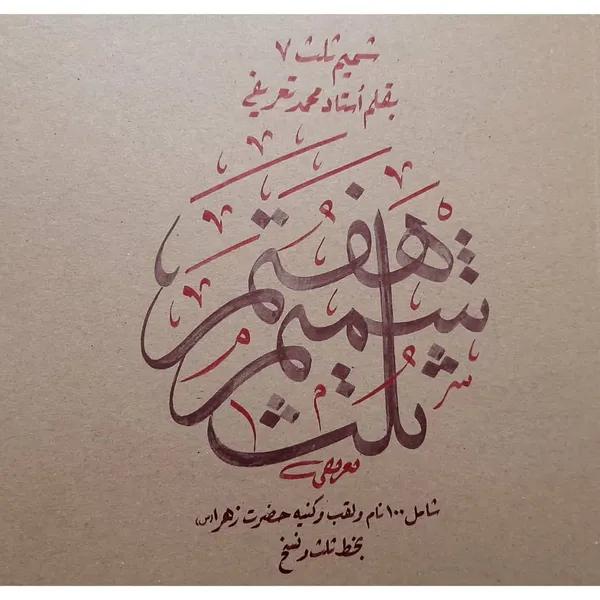 شمیم ثلث ۷
بقلم أستاد محمد تعریفی
هفتم
شمیم
ثلث
تعریفی
شامل ۱۰۰ نام و لقب و کنیه حضرت زهرا (س)
بخط ثلث و نسخ